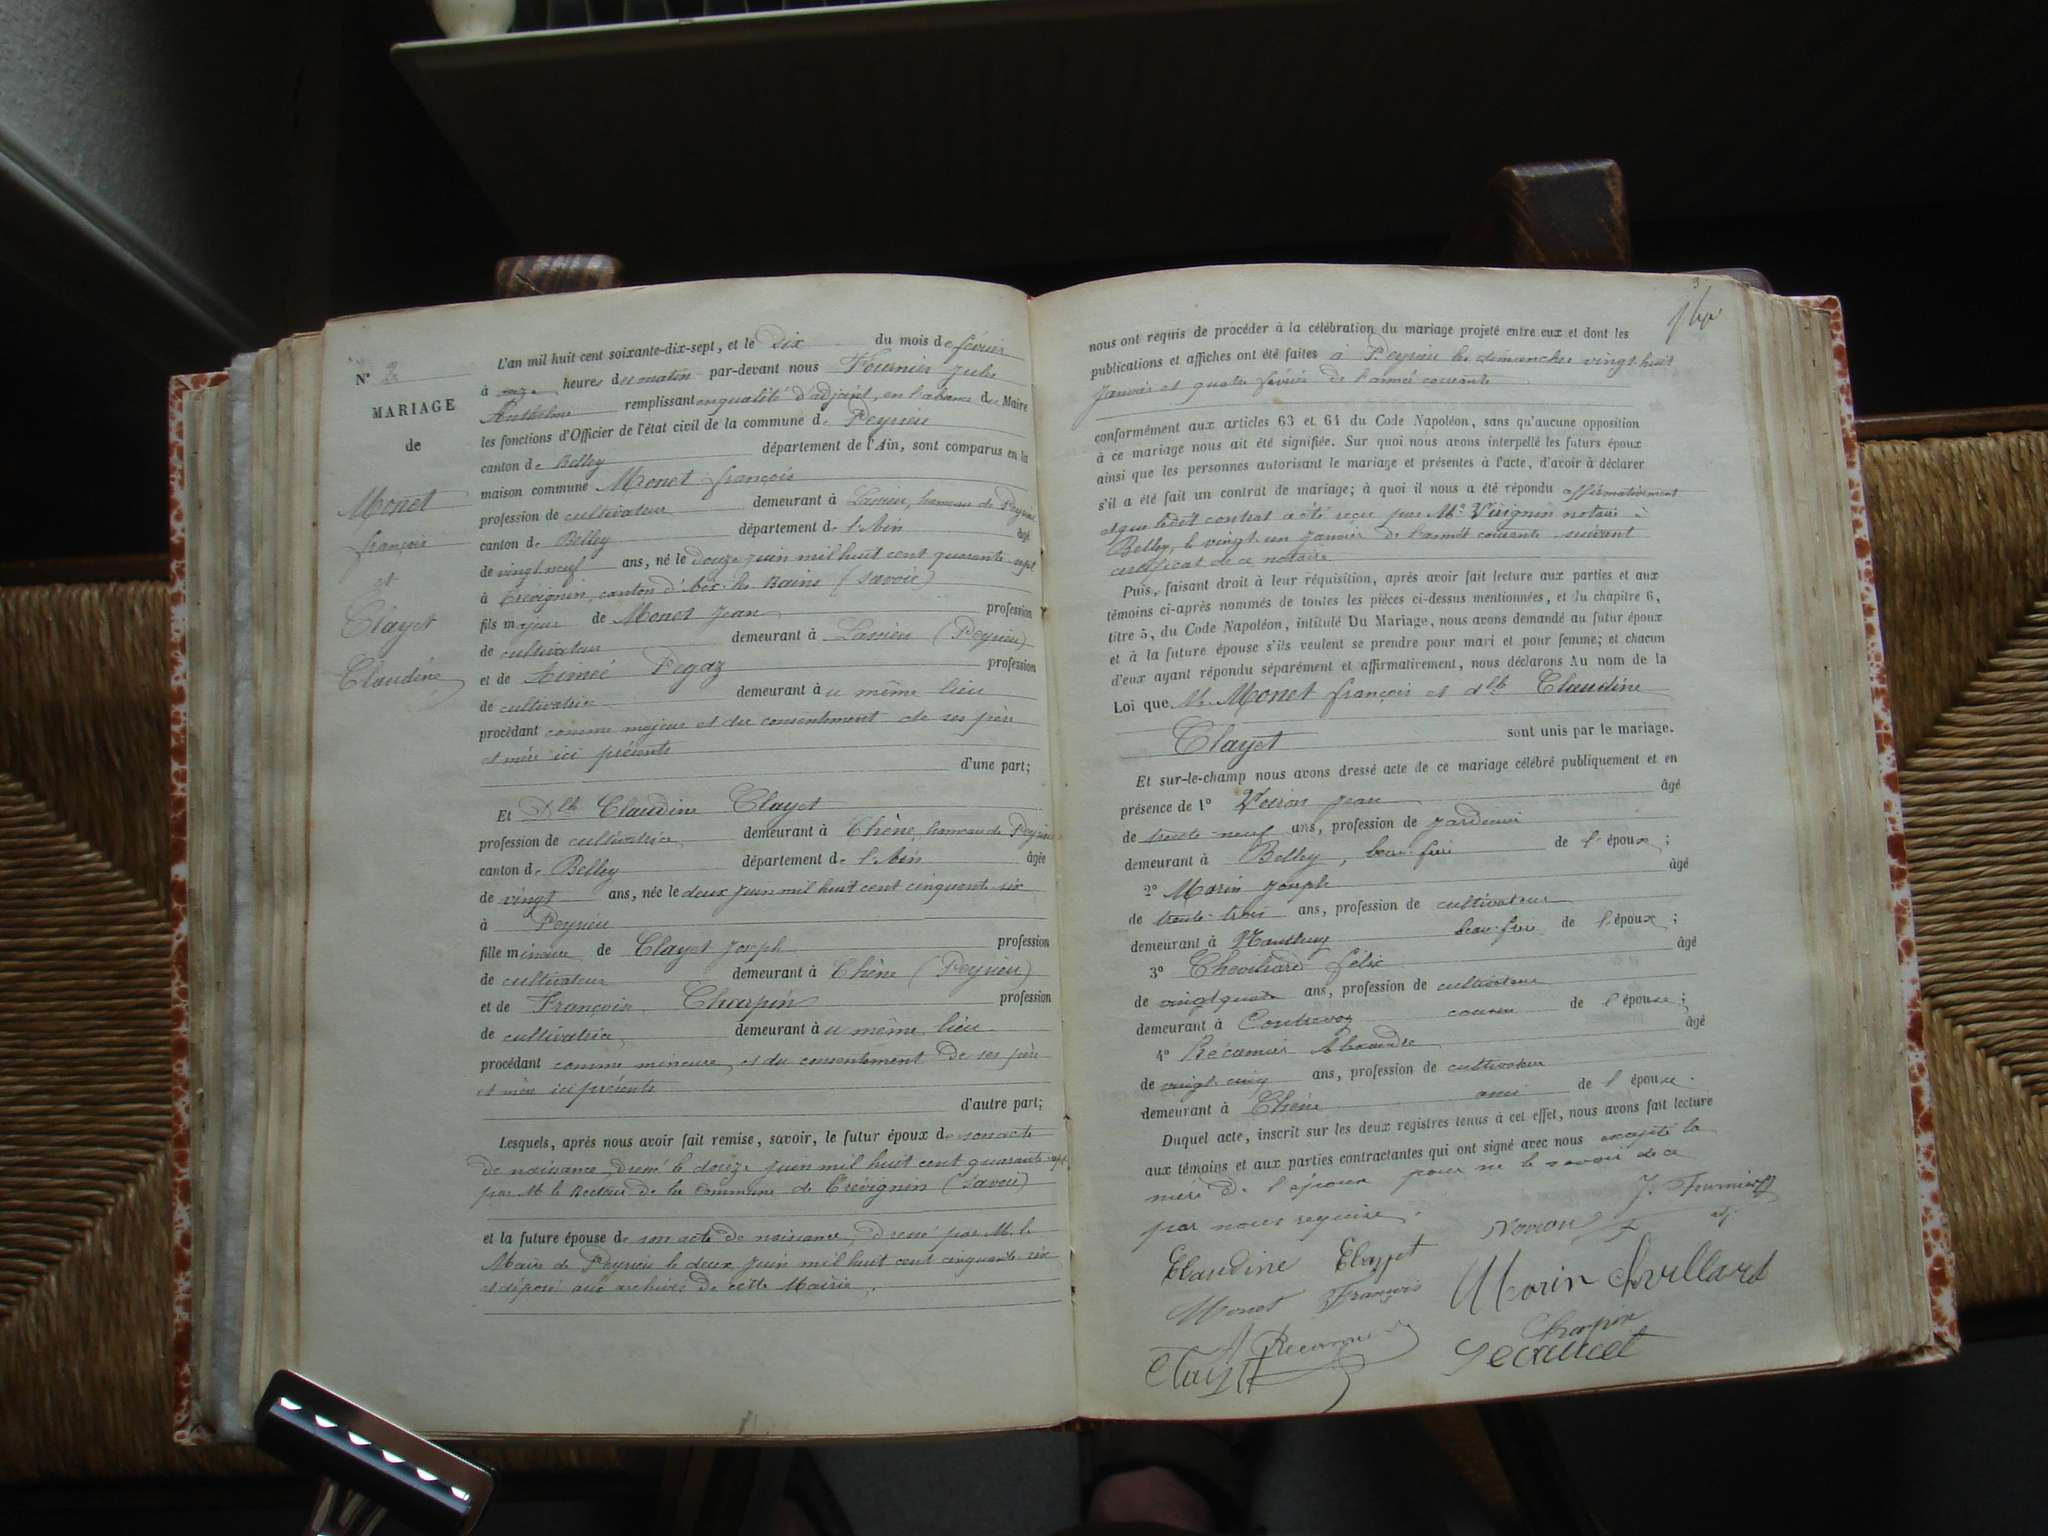 N° 2
MARIAGE
de
Monet
françois
et
Clayet
Claudine
L'an mil huit cent soixante-dix-sept, et le dix du mois de février
à onze heures du matin par-devant nous Fournier Jules
Anthelme remplissant en qualité d'adjoint, en l'absence du Maire
les fonctions d'Officier de l'état civil de la commune de Peyrieu
canton de Belley département de l'Ain, sont comparus en la
maison commune Monet françois
profession de cultivateur demeurant à Lassieu, hameau de Peyrieu
canton de Belley département de l'Ain âgé
de vingt neuf ans, né le douze juin mil huit cent quarante-sept
à Trévignin, canton d'Aix-les Bains (Savoie)
fils majeur de Monet Jean profession
de cultivateur demeurant à Lassieu (Peyrieu)
et de Aimée Pegaz profession
de cultivatrice demeurant à u même lieu
procédant comme majeur et du consentement de ses père
et mère ici présents
d'une part;
Et Dlle Claudine Clayet
profession de cultivatrice demeurant à Chêne, hameau de Peyrieu
canton de Belley département de l'Ain âgée
de vingt ans, née le deux juin mil huit cent cinquante six
à Peyrieu
fille mineure de Clayet Joseph profession
de cultivateur demeurant à Chêne (Peyrieu)
et de Françoise Charpin profession
de cultivatrice demeurant à u même lieu
procédant comme mineure et du consentement de ses père
et mère ici présents
d'autre part;
Lesquels, après nous avoir fait remise, savoir, le futur époux de son acte
de naissance, dressé le douze juin mil huit cent quarante-sept
par M le Recteur de la Commune de Trévignin (Savoie)
et la future épouse de son acte de naissance, dressé par M. le
Maire de Peyrieu le deux juin mil huit cent cinquante six
et déposé aux archives de cette Mairie.
3
nous ont requis de procéder à la célébration du mariage projeté entre eux et dont les
publications et affiches ont été faites à Peyrieu les dimanches vingt-huit
Janvier et quatre février de l'année courante
conformément aux articles 63 et 64 du Code Napoléon, sans qu'aucune opposition
à ce mariage nous ait été signifiée. Sur quoi nous avons interpellé les futurs époux
ainsi que les personnes autorisant le mariage et présentes à l'acte, d'avoir à déclarer
s'il a été fait un contrat de mariage; à quoi il nous a été répondu affirmativement
et que ledit contrat a été reçu par Me Virignin notaire à
Belley, le vingt-un janvier de l'année courante suivant
certificat de ce notaire
Puis, faisant droit à leur réquisition, après avoir fait lecture aux parties et aux
témoins ci-après nommés de toutes les pièces ci-dessus mentionnées, et du chapitre 6,
titre 5, du Code Napoléon, intitulé Du Mariage, nous avons demandé au futur époux
et à la future épouse s'ils veulent se prendre pour mari et pour femme; et chacun
d'eux ayant répondu séparément et affirmativement, nous déclarons Au nom de la
Loi que M. Monet françois et dlle Claudine
Clayet sont unis par le mariage.
Et sur-le-champ nous avons dressé acte de ce mariage célébré publiquement et en
présence de 1° Jean âgé
de trente-neuf ans, profession de jardinier
demeurant à Belley, beau-frère de l'époux;
2° Morin Joseph âgé
de trente-trois ans, profession de cultivateur
demeurant à beau-frère de l'époux;
3° Chevillard félix âgé
de vingt quatre ans, profession de cultivateur
demeurant à Contrevoz cousin de l'épouse;
4° Récamier Alexandre âgé
de vingt-cinq ans, profession de cultivateur
demeurant à Chêne ami de l'épouse.
Duquel acte, inscrit sur les deux registres tenus à cet effet, nous avons fait lecture
aux témoins et aux parties contractantes qui ont signé avec nous excepté la
mère de l'époux pour ne le savoir de ce
par nous requise.
J. Fournier
adj.
Claudine Clayet
Monet François
Morin
Charpin
Clayet